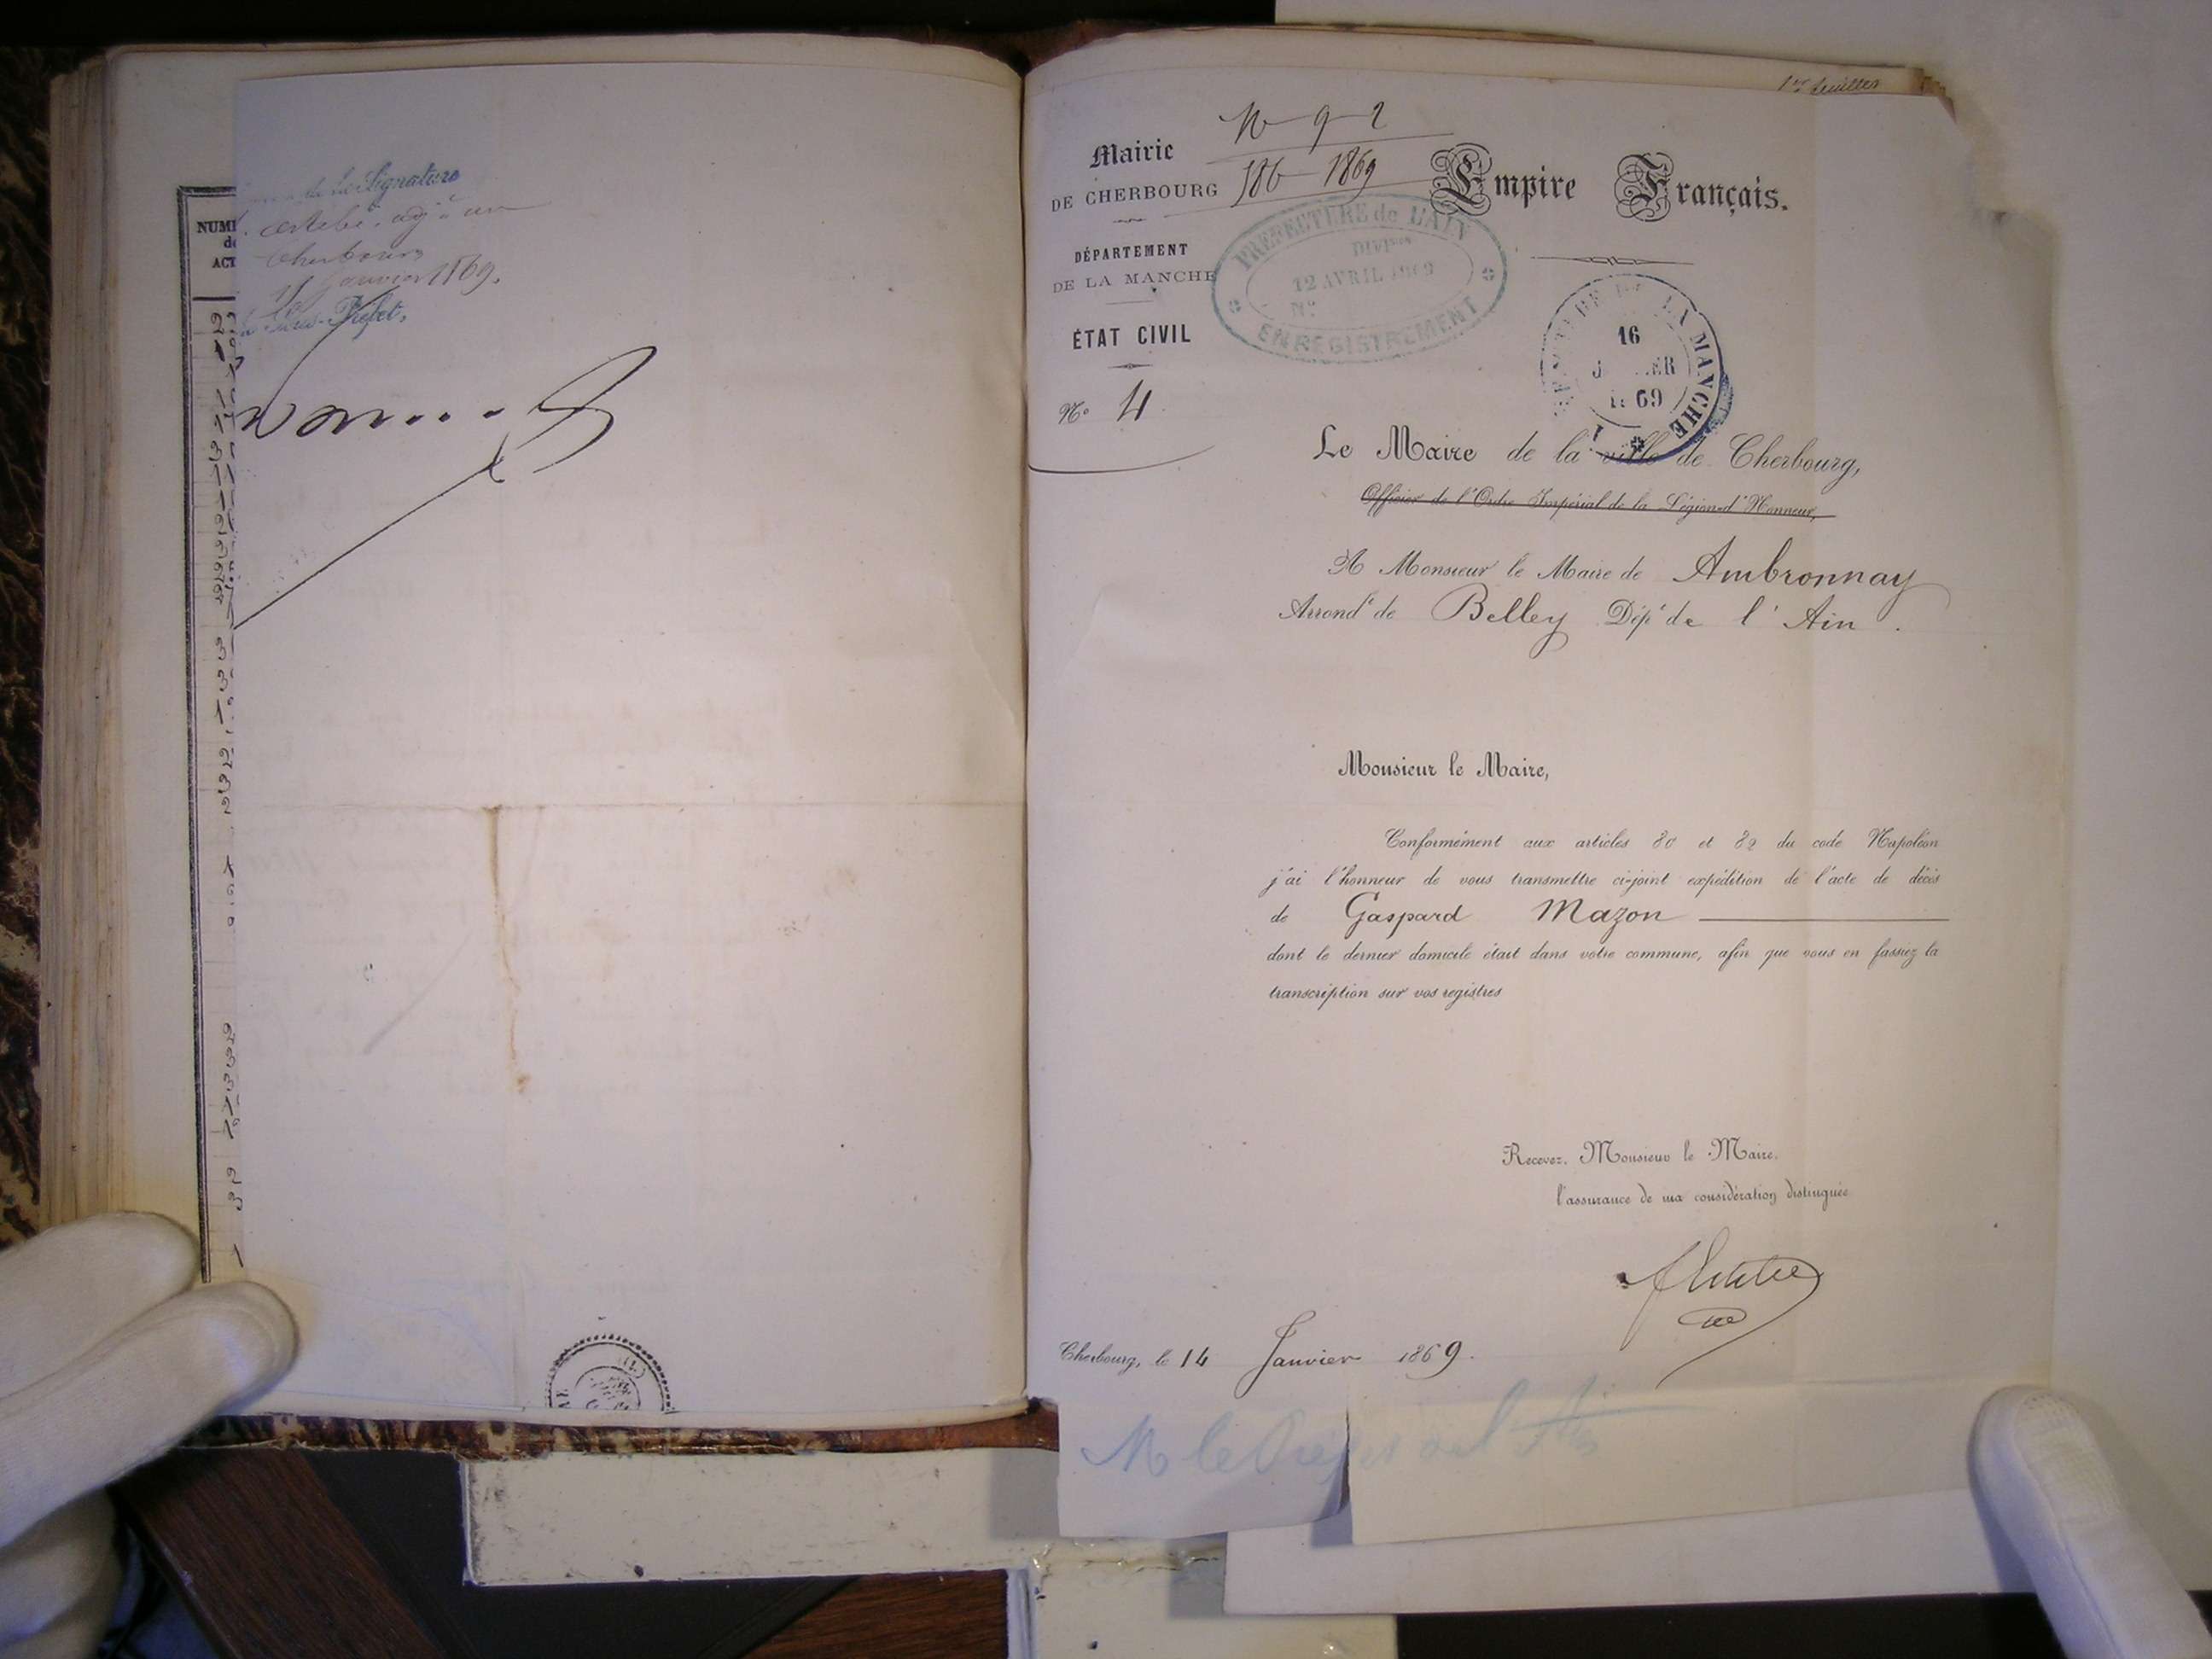 de la Signature
adj. au
Cherbourg
Janvier 1869.
Sous-Préfet,
NUM
de
ACT
1er feuillet
Mairie
DE CHERBOURG
DÉPARTEMENT
DE LA MANCHE
ÉTAT CIVIL
N° 4
N 92
186 1869
Empire Français.
PRÉFECTURE de L'AIN
DIVIon
12 AVRIL 1869
N°
ENREGISTREMENT
DE LA MANCHE
16
1869
Le Maire de la ville de Cherbourg,
Officier de l'Ordre Impérial de la Légion d'Honneur,
A Monsieur le Maire de Ambronnay
Arrondt de Belley Dépt de l'Ain.
Monsieur le Maire,
Conformément aux articles 80 et 82 du code Napoléon
j'ai l'honneur de vous transmettre ci-joint expédition de l'acte de décès
de Gaspard Mazon
dont le dernier domicile était dans votre commune, afin que vous en fassiez la
transcription sur vos registres
Recevez, Monsieur le Maire,
l'assurance de ma considération distinguée
Cherbourg, le 14 Janvier 1869.
M le Préfet de l'Ain